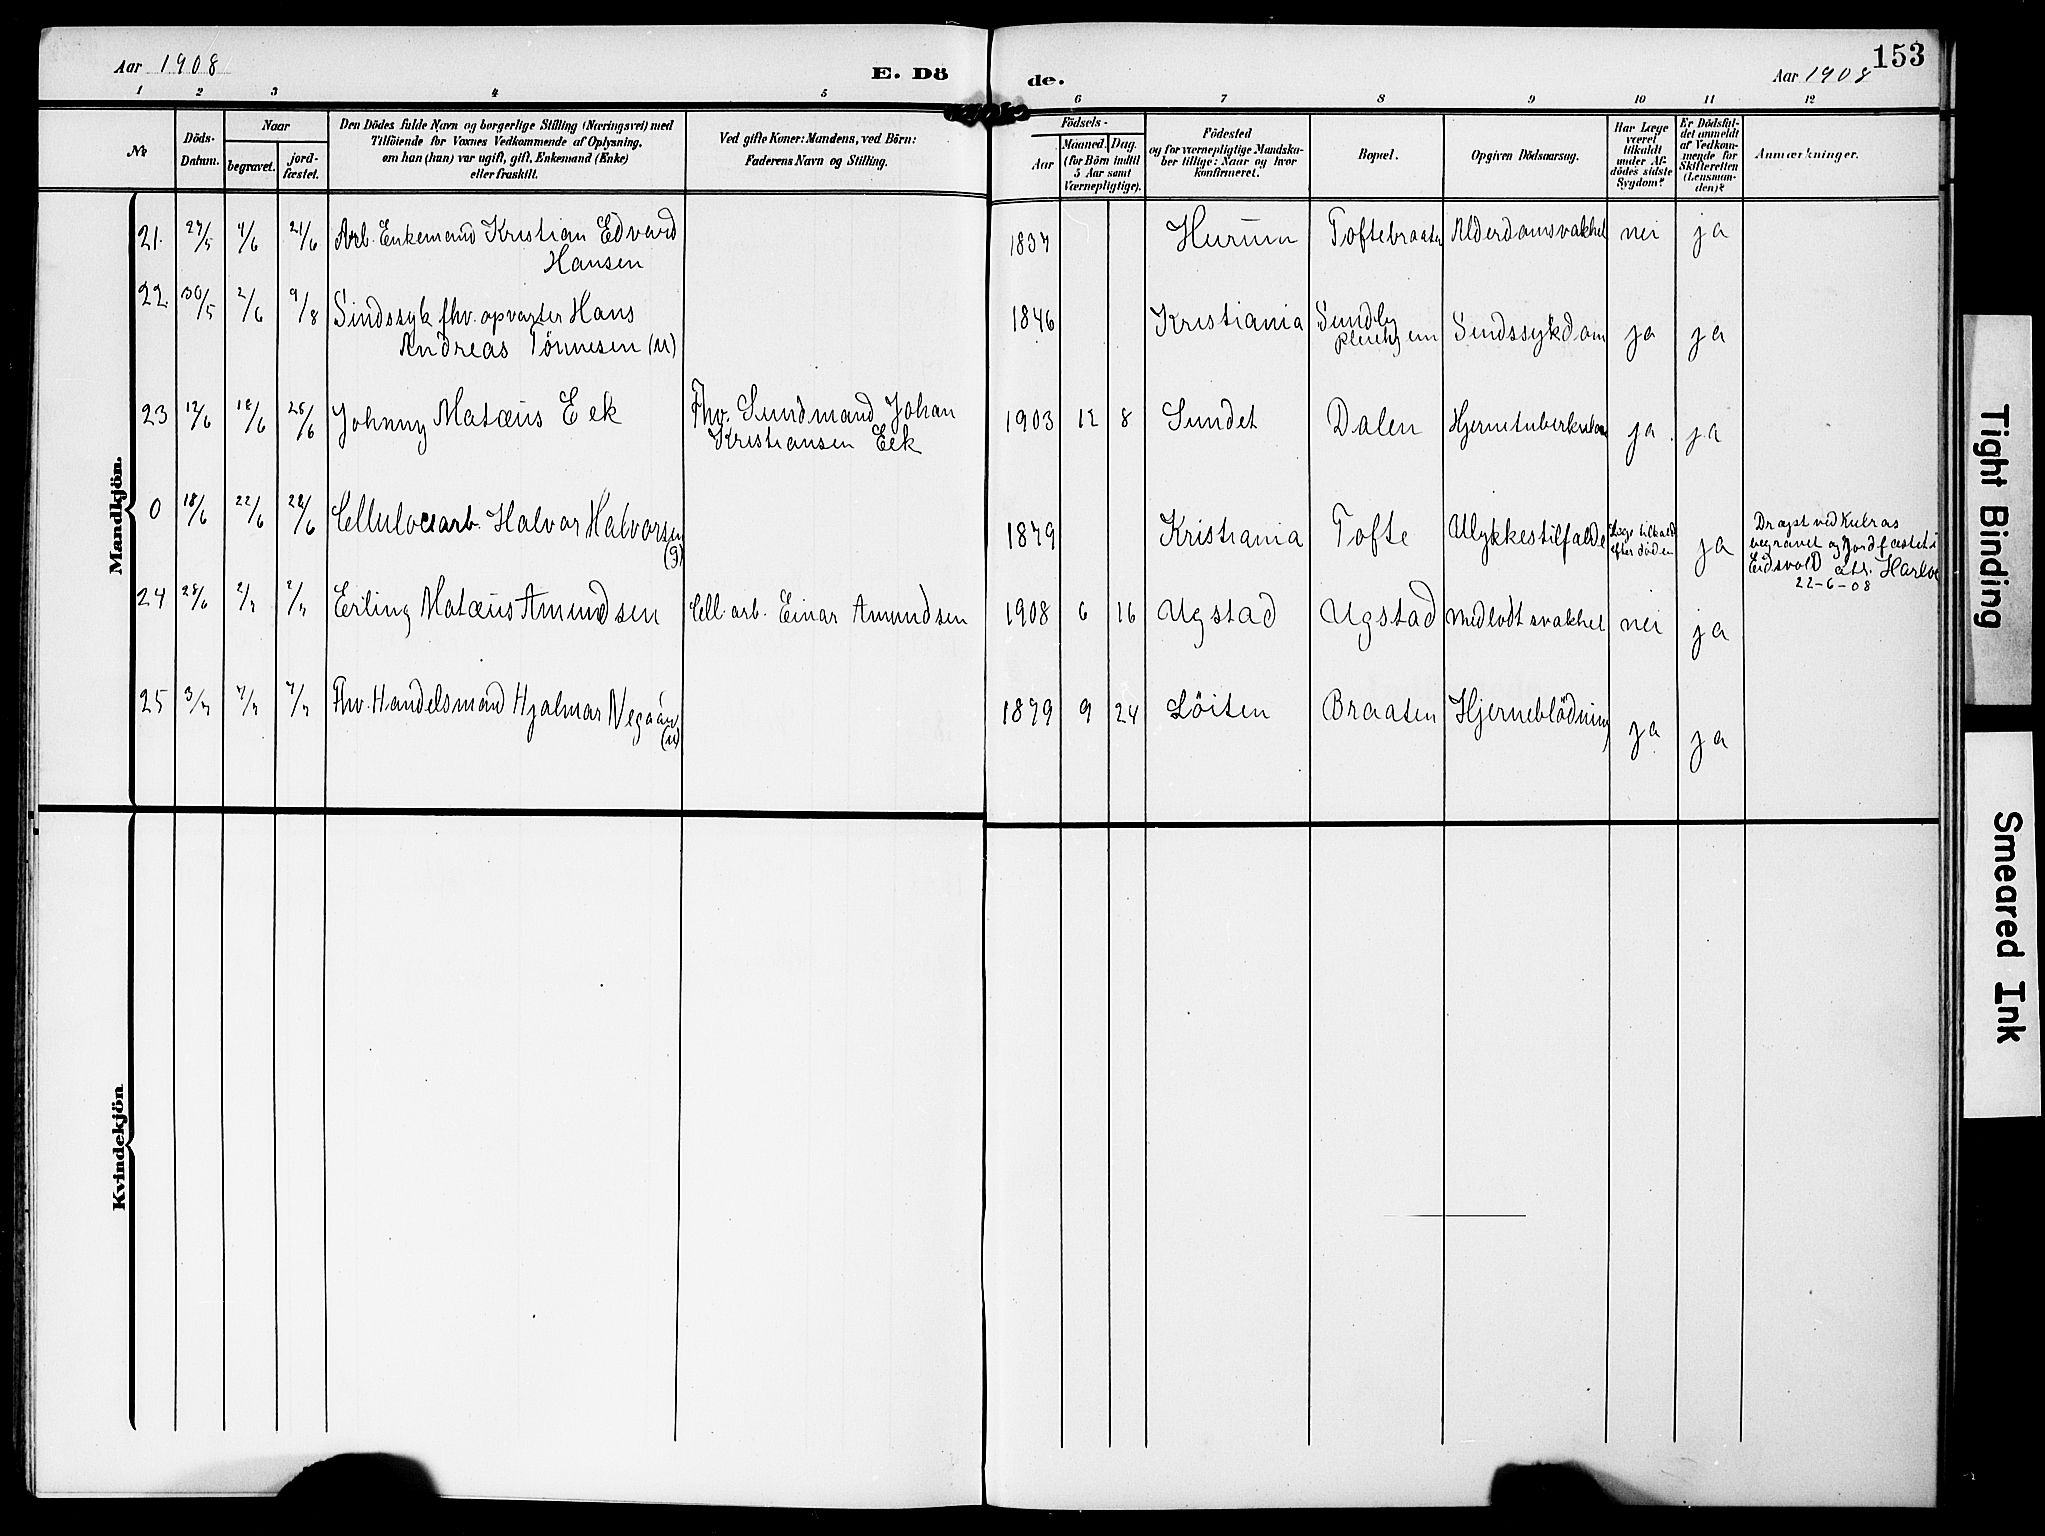 Aar 1908
E. Dö
de.
Aar 1908
153
1 2 3 4 5 6 7 8 9 10 11 12
No
Döds-
Datum.
Naar
begravet.
jord-
fæstet.
Den Dödes fulde Navn og borgerlige Stilling (Næringsvei) med
Tilföiende for Voxnes Vedkommende af Oplysning,
om han (hun) var ugift, gift, Enkemand (Enke)
eller fraskilt.
Ved gifte Koner: Mandens, ved Börn:
Faderens Navn og Stilling.
Födsels-
Aar
Maaned. Dag.
(for Börn indtil
5 Aar samt
Værnepligtige).
Födested
og for værnepligtige Mandska-
ber tillige: Naar og hvor
konfirmeret.
Bopæl.
Opgiven Dödsaarsag.
Har Læge
været
tilkaldt
under Af-
dödes sidste
Sygdom?
Er Dödsfal-
det anmeldt
af Vedkom-
mende for
Skifteretten
(Lensman-
den)?
Anmærkninger.
Mandkjön.
21. 27/5 4/6 21/6 Arb. Enkemand Kristian Edvard
Hansen
1837 Hurum Toftebraaten Alderdomsvakhet nei ja
22. 30/5 2/6 9/8 Sindssyk fhv. opvarter Hans
Andreas Tönnesen (u)
1846 Kristiania Sundby
pleiehjem Sindssykdom ja ja
23 12/6 18/6 26/6 Johnny Matæus Eek
Fhv. Sundmand Johan
Kristiansen Eek
1903 12 8 Sundet Dalen Hjernetuberkulose ja ja
0 18/6 22/6 28/6 Cellulosearb. Halvor Halvorsen
(g)
1879 Kristiania Tofte Ulykkestilfælde Læge tilkaldt
efter döden ja
Dræpt ved Kulras
begravet og Jordfæstet i
Eidsvold
22-6-08
24 28/6 2/7 2/7 Erling Matæus Amundsen Cell. arb. Einar Amundsen
1908 6 16 Ugstad Ugstad Medfödt svakhet nei ja
25 3/7 7/7 7/7 Fhv. Handelsmand Hjalmar
(u)
1879 9 24 Löiten Braaten Hjerneblödning ja ja
Kvindekjön
Tight Binding
Smeared Ink